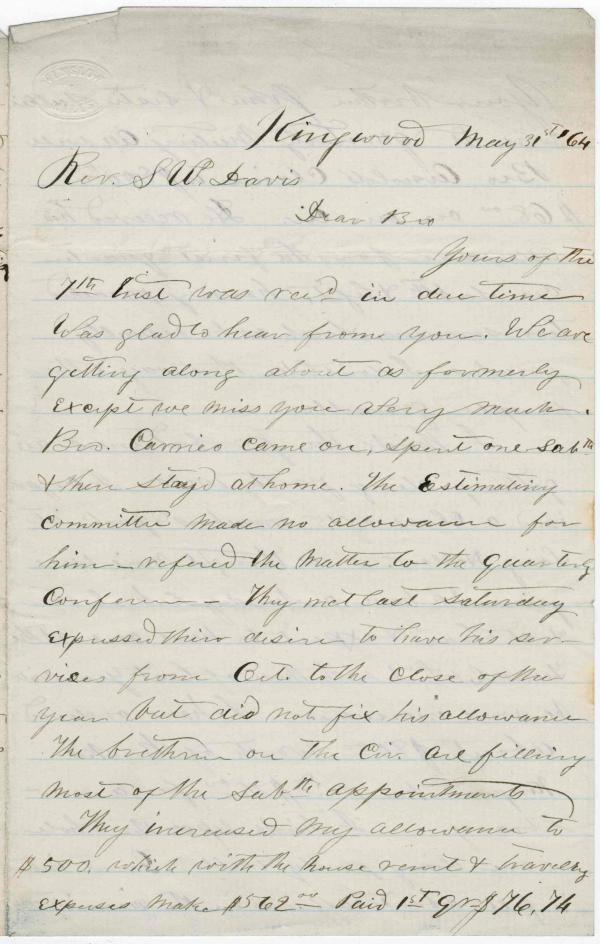 Kingwood May 31st '64
Rev. S W. Davis
Dear Bro
Yours of the
7th Inst was recd in due time
Was glad to hear frome you. We are
getting along about as formerly
except we miss you very much.
Bro. Carrico came on, spent one Sabth
& then stayd at home. The Estimating
committee made no allowance for
him – refered the matter to the Quarterly
Conference – They met last Saturday
expressed their desire to have his ser-
vices from Oct. to the close of the
year but did not fix his allowance
The brethren on the Cir. are filling
most of the Sabth appointments
They increased my allowance to
$500. which with the house rent & traveling
expenses make $562.00 Paid 1st Qr $76,74